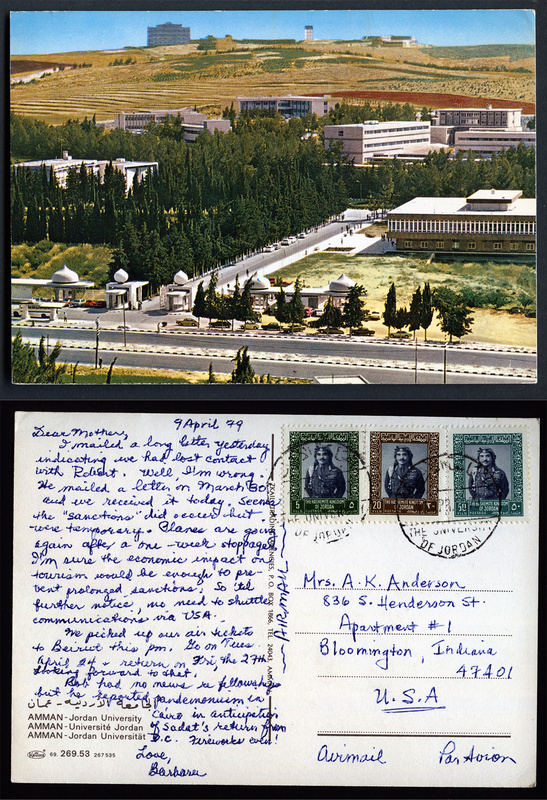 9 April 79
Dear Mother,
I mailed a long letter yesterday
indicating we had lost contact
with Robert. Well I'm wrong.
He mailed a letter on March 30
and we received it today. Seems
the "sanctions" did occur but
were temporary. Planes are going
again after a one-week stoppage.
I'm sure the economic impact on
tourism would be enough to pre-
vent prolonged sanctions. So 'til
further notice, no need to shuttle
communications via USA.
We picked up our air tickets
to Beirut this pm. Go on Tues.
April 24 & return on Fri the 27th
Looking forward to that.
Bob had no news re fellowships
but he reported pandemonium in
Cairo in anticipation
of Sadat's return from
D.C. Fireworks even!
Love,
Barbara
الجامعة الأردنية - عمان
AMMAN - Jordan University
AMMAN - Université Jordan
AMMAN - Jordan Universität
69. 269.53 267 535
P.O. BOX 1866, TEL. 24043, AMMAN
AIRMAIL
THE HASHEMITE KINGDOM
OF JORDAN
5
٥
THE HASHEMITE KINGDOM
OF JORDAN
20
٢٠
THE HASHEMITE KINGDOM
OF JORDAN
50
٥٠
THE UNIVERSITY
OF JORDAN
THE UNIVERSITY
OF JORDAN
Mrs. A. K. Anderson
836 S. Henderson St.
Apartment #1
Bloomington, Indiana
47401
U.S.A
Airmail Par Avion